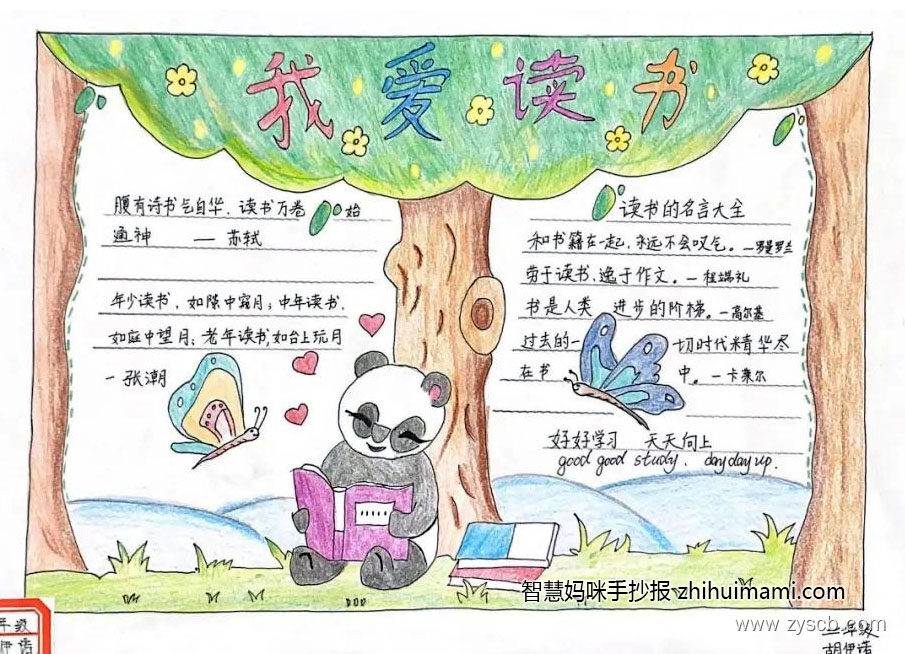 我爱读书
腹有诗书气自华，读书万卷始
通神 — 苏轼
年少读书，如隙中窥月；中年读书，
如庭中望月；老年读书，如台上玩月
—张潮
读书的名言大全
和书籍在一起，永远不会叹气。—罗曼罗兰
劳于读书，逸于作文。—程端礼
书是人类 进步的阶梯。—高尔基
过去的一 切时代精华尽
在书 中。—卡莱尔
好好学习 天天向上
good good study. day day up.
智慧妈咪手抄报 zhihuimami.com
www.zyscb.com
二年级
胡伊诺
年级
伊诺